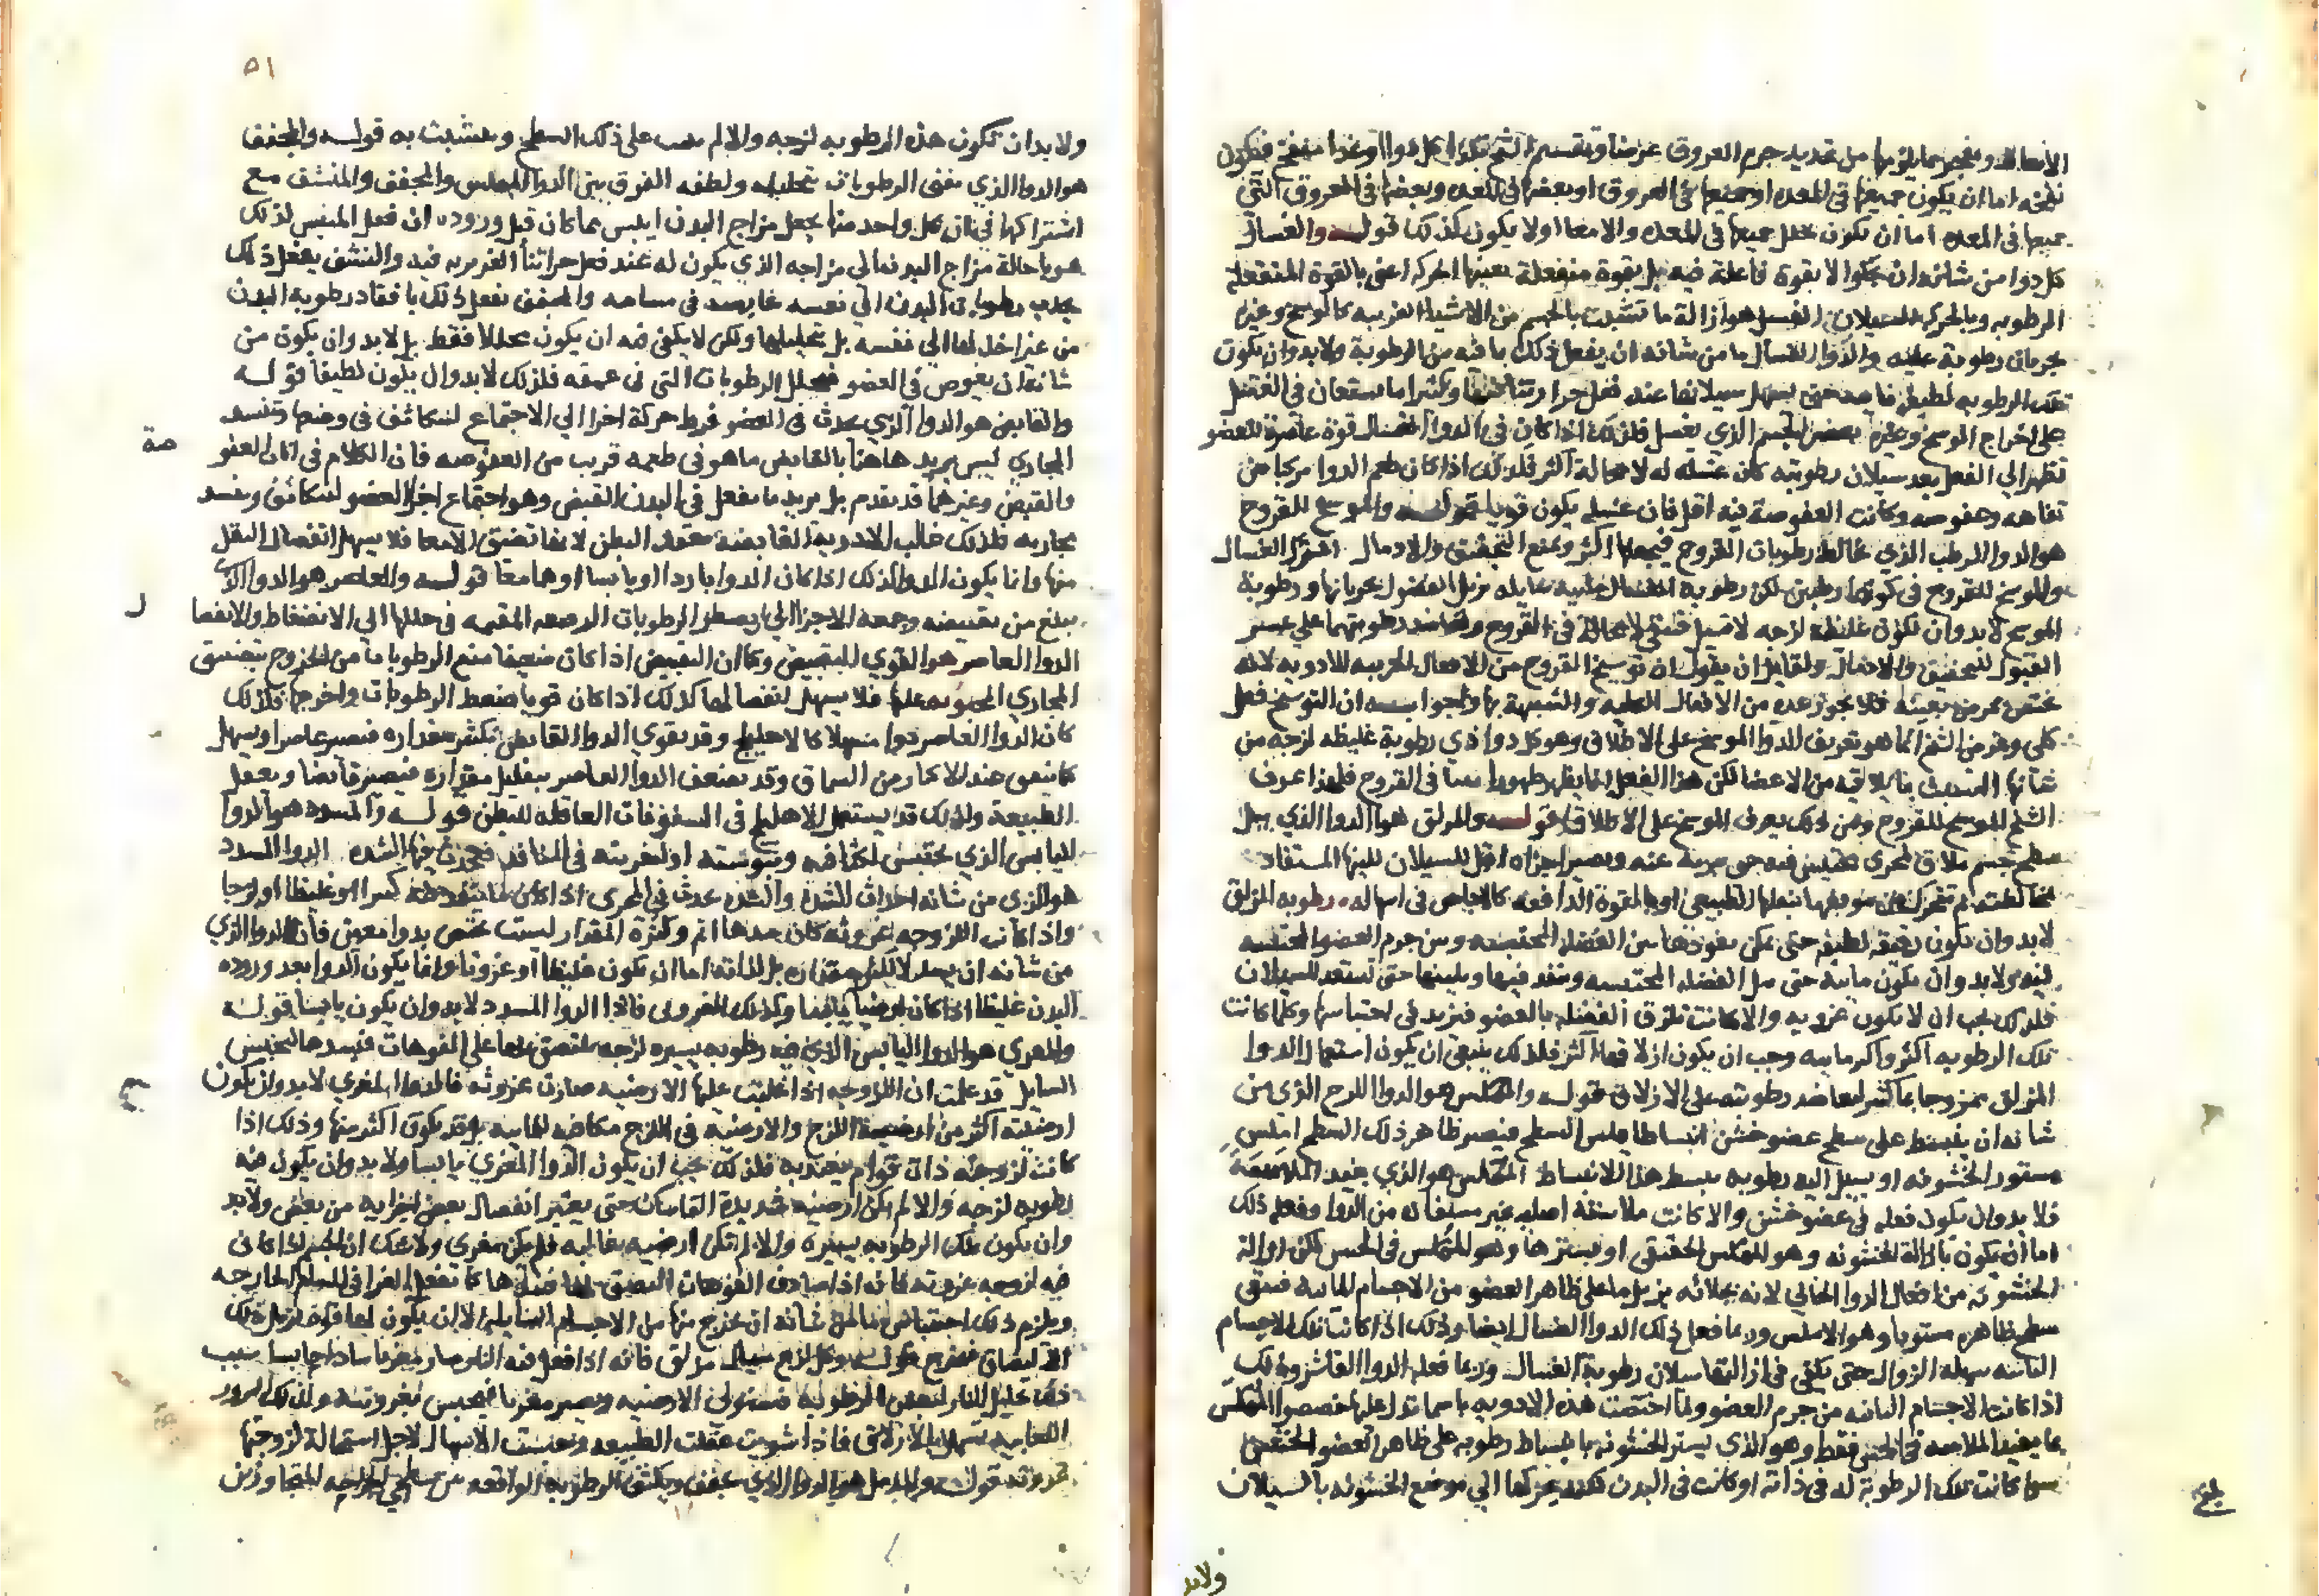 الانعاظ وينجر مما يلزمها من تمديد جرم العروق عرضا وتقسيم الشيخ
نفخه اما ان يكون جميعها في المعده او جميعها في العروق او بعضها في المعده وبعضها في العروق التي
جميعها في المعده اما ان يكون جميعها في المعده والامعا او لا يكون كذلك قوله والغسال
كل دوا من شانه ان يجلو لا بقوة فاعلة فيه بل بقوة منفعلة يعينها الحركه اعني بالقوة المنفعلة
الرطوبه وبالحركه السيلان الغسل هو ازالة ما تشبث بالجسم من الاشيا الغريبه كالوسخ وغيره
بجريان رطوبة عليه والدوا الغسال ما من شانه ان يفعل ذلك بما فيه من الرطوبة ولابد وان يكون
تلك الرطوبه لطيفة يسهل سيلانها عند فعل حرارتنا فيها وكثيرا ما يستعان في الغسل
على اخراج الوسخ وغيره بعصر الجسم الذي يغسل فلذلك اذا كان في الدوا الغسال قوة عاصرة للعضو
تظهر الي الفعل بعد سيلان رطوبته كان غسله له لا محالة اكثر فلذلك اذا كان طعم الدوا مركبا من
تفاهه وعفوصه وكانت العفوصة فيه اقل فان غسله يكون قويا قوله والموسخ للقروح
هو الدوا الرطب الذي يخالط رطوبات القروح فيجعلها اكثر ويمنع التجفيف والادمال الغسال
والموسخ للقروح في كونهما رطبين لكن رطوبه الغسال مزيل الفضول بجريانها ورطوبة
الموسخ لابد وان تكون غليظة لزجه لا تسيل فتبقي لا محالة في القروح رطوبتهما علي عسر
القبول للتجفيف والادمال ولقايل ان يقول ان توسيخ القروح من الافعال الجزييه للادويه لانه
مختص بمرض بعينه فلا يجوز عده من الافعال الكليه والشبيهة بها والجواب ان التوسيخ فعل
كلي وغرض الشيخ انما هو تعريف الدوا الموسخ علي الاطلاق وهو كل دوا ذي رطوبة غليظه لزجه من
شانها التشبث بما يلاقيه من الاعضا لكن هذا الفعل انما يظهر ظهورا بينا في القروح فلهذا عرف
الشيخ الموسخ للقروح ومن ذلك يعرف الموسخ علي الاطلاق قوله والمزلق هو الدوا الذي يبل
سطح جسم ملاق لمجري محتبس فيه حتي يبريه عنه ويصير اجزاه اقبل للسيلان للينها المستفاد
بمخالطته ثم تتحرك عن موضعها بثقلها الطبيعي او بالقوة الدافعه كالاجاص في اسهاله ورطوبه المزلق
لابد وان تكون رقيقه لطيفه حتي يمكن نفوذها بين الفضله المحتبسه وبين جرم العضو المحتبسه
فيه ولابد وان يكون مائية حتي تبل الفضله المحتبسه وتنفذ فيها ويلينها حتي تستعد للسيلان
فلذلك يجب ان لا يكون غرويه والا كانت تلزق الفضله بالعضو فتزيد في احتباسها وكلما كانت
تلك الرطوبه اكثر واكثر مائيه وجب ان يكون ازلاقها اكثر فلذلك ينبغي ان يكون استعمال الدوا
المزلق ممزوجا بما كثير رطوبته علي الازلاق قوله والمملس هو الدوا اللزج الذي من
شانه ان ينبسط علي سطح عضو خشن انبساطا املس السطح فيصير ظاهر ذلك السطح املس
مستور الخشونه او يسيل اليه رطوبه ينبسط هذا الانبساط المملس هو الذي يفيد الملاسة
فلابد وان يكون فعله في عضو خشن والا كانت ملاسته اصليه غير مستفاده من الدوا وفعله ذلك
اما ان يكون بازالة الخشونه وهو المملس الحقيقي او بسترها وهو المملس في الحس لكن ازالة
الخشونه من افعال الدوا الجالي لانه بجلائه يزيل ما علي ظاهر العضو من الاجسام الناتيه فيبقي
سطح ظاهره مستويا وهو الاملس وربما فعل ذلك الدوا الغسال ايضا وذلك اذا كانت تلك الاجسام
الناتيه سهلة الزوال حتي يكفي في ازالتها سيلان رطوبة الغسال وربما فعله الدوا القاشر وذلك
اذا كانت الاجسام الناتيه من جرم العضو ولما اختصت هذه الادويه باسما تدل عليها خصصوا المملس
بما يفيد الملاسه في الحس فقط وهو الذي يستر الخشونه بانبساط رطوبه علي ظاهر العضو الخشن
سوا كانت تلك الرطوبة له في ذاته او كانت في البدن لكنه يحركها الي موضع الخشونه بالسيلان
ولابد
بلغ
٥١
ولابد ان تكون هذه الرطوبه لزجه والا لم علي ذلك السطح وتتشبث به قوله والمجفف
هو الدوا الذي يفني الرطوبات بتحليله ولطفه الفرق بين الدوا الميبس والمجفف والمنشف مع
اشتراكها في ان كل واحد منها يجعل مزاج البدن ايبس مما كان قبل وروده ان فعل الميبس لذلك
هو باحالة مزاج البدن الي مزاجه الذي يكون له عند فعل حرارتنا الغريزيه فيه والنشف يفعل ذلك
بجذب رطوبات البدن الي نفسه في مسامه والمجفف يفعل ذلك بافقاد رطوبه البدن
من غير اخذ لها الي نفسه بل بتحليلها ولكن لا يكفي فيه ان يكون محللا فقط بل لابد وان يكون من
شانه ان يغوص في العضو فيحلل الرطوبات التي في عمقه فلذلك لابد وان يكون لطيفا قوله
والقابض هو الدوا الذي يحدث في العضو فرط حركة اجزا الي الاجتماع لتتكاثف في وضعها وتنسد
المجاري ليس يريد هاهنا بالقابض ما هو في طعمه قريب من العفوصه فان الكلام في العفو
صة
والقبض وغيرهما قد تقدم بل يريد ما يفعل في البدن القبض وهو اجتماع اجزا العضو لتتكاثف وتنسد
مجاريه فلذلك غالب الادوية القابضة تعقد البطن لانها تضيق الامعا فلا يسهل انفصال الثفل
منها وانما يكون الدوا كذلك اذا كان الدوا باردا او يابسا او هما معا قوله والعاصر هو الدوا الذي
يبلغ من تقبيضه وجمعه الاجزا الي ان يضطر الرطوبات الرقيقه المقيمه في خللها الي الانضغاط والانفصا
ل
الدوا العاصر هو القوي التقبيض وكما ان التقبيض اذا كان ضعيفا منع الرطوبات من الخروج بتضييق
المجاري المحتويه عليها فلا يسهل انفصالها كذلك اذا كان قويا ضغط الرطوبات واخرجها فلذلك
كان الدوا العاصر دوا مسهلا كالاهليلج وقد يقوي الدوا القابض بتكثير مقداره فيصير عاصرا ويسهل
كما يتفق عند الاكثار من السماق وقد يضعف الدوا العاصر بتقليل مقداره فيصير قابضا ويعقل
الطبيعة ولذلك قد يستعمل الاهليلج في السفوفات العاقله للبطن قوله والمسدد هو الدوا
اليابس الذي يحتبس لكثافته ويبوسته او لتغريته في المنافذ فيحدث فيها السدد الدوا المسدد
هو الذي من شانه احداث السدد والسدد تحدث في المجري اذا كان كثيرا او غليظا او لزجا
واذا كانت اللزوجه غرويه كان سدها اتم وكثرة المقدار ليست تختص بدوا معين فان الدوا الذي
من شانه ان يسد لا لكثرة مقداره بل لذاته اما ان يكون غليظا او غرويا وانما يكون الدوا بعد وروده
البدن غليظا اذا كان ارضيا يابسا وكذلك الغروي فاذا الدوا المسدد لابد وان يكون يابسا قوله
والمغري هو الدوا اليابس الذي فيه رطوبه يسيره لزجه يلتصق بها علي الفوهات فيسدها فيحبس
السايل قد علمت ان اللزوجه اذا غلبت عليها الارضيه صارت غرويه فالدوا المغري لابد وان يكون
ارضيته اكثر من ارضية اللزج والارضيه في اللزج مكافيه للماييه او قد يكون اكثر منها وذلك اذا
كانت لزوجته ذات قوام يعتد به فلذلك يجب ان يكون الدوا المغري يابسا ولابد وان يكون فيه
رطوبه لزجه والا لم يكن ارضيه شديدة التماسك حتي يعسر انفصال بعض اجزايه من بعض ولابد
وان يكون تلك الرطوبه يسيره والا لم تكن ارضيه غالبه فلم يكن مغري ولا شك ان الجسم اذا كان
فيه لزوجه غرويه فانه اذا صادف الفوهات التصق بها فسدها كما يفعل الغرا في المسام الخارجه
ويلزم ذلك احتباس ما من شانه ان يخرج منها من الاجسام السايله الا ان يكون لها
الالتصاق فتخرج قوله وكل لزج سيال مزلق فانه اذا فعل فيه النار صار مغريا سادا حابسا بسبب
ذلك تحليل النار لبعض الرطوبه فتستولي الارضيه ويصير مغريا فيحبس بغرويته ولذلك البزور
اللعابيه تسهل بالازلاق فاذا شويت عقلت الطبيعه وحبست الاسهال لاجل استحالة لزوجتها
غرويه قوله والمدمل هو الدوا الذي يجفف ويكثف الرطوبه الواقعه بين سطحي الجراحه المتجاورين